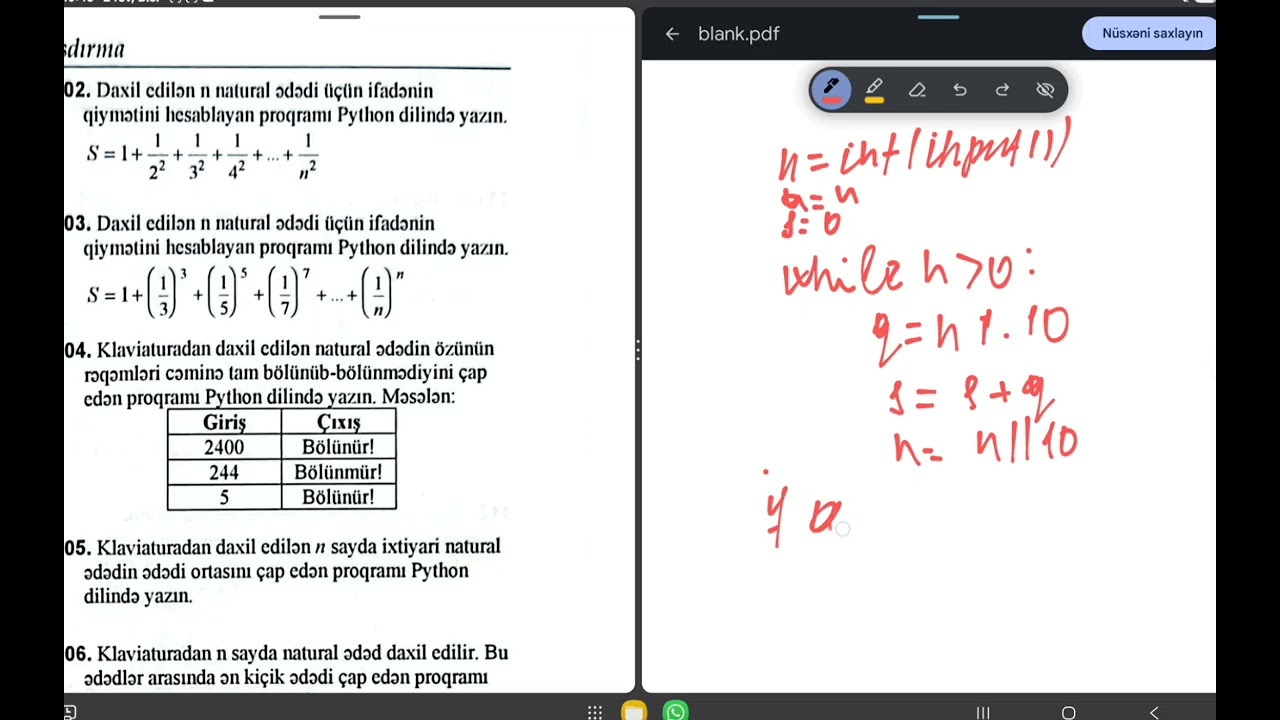 şdırma
02. Daxil edilən n natural ədədi üçün ifadənin
qiymətini hesablayan proqramı Python dilində yazın.
S = 1 + 1/2² + 1/3² + 1/4² + ... + 1/n²
03. Daxil edilən n natural ədədi üçün ifadənin
qiymətini hesablayan proqramı Python dilində yazın.
S = 1 + (1/3)³ + (1/5)⁵ + (1/7)⁷ + ... + (1/n)ⁿ
04. Klaviaturadan daxil edilən natural ədədin özünün
rəqəmləri cəminə tam bölünüb-bölünmədiyini çap
edən proqramı Python dilində yazın. Məsələn:
Giriş Çıxış
2400 Bölünür!
244 Bölünmür!
5 Bölünür!
05. Klaviaturadan daxil edilən n sayda ixtiyari natural
ədədin ədədi ortasını çap edən proqramı Python
dilində yazın.
06. Klaviaturadan n sayda natural ədəd daxil edilir. Bu
ədədlər arasında ən kiçik ədədi çap edən proqramı
blank.pdf
Nüsxəni saxlayın
n = int(input())
a = n
s = 0
while n > 0:
q = n % 10
s = s + q
n = n // 10
if a